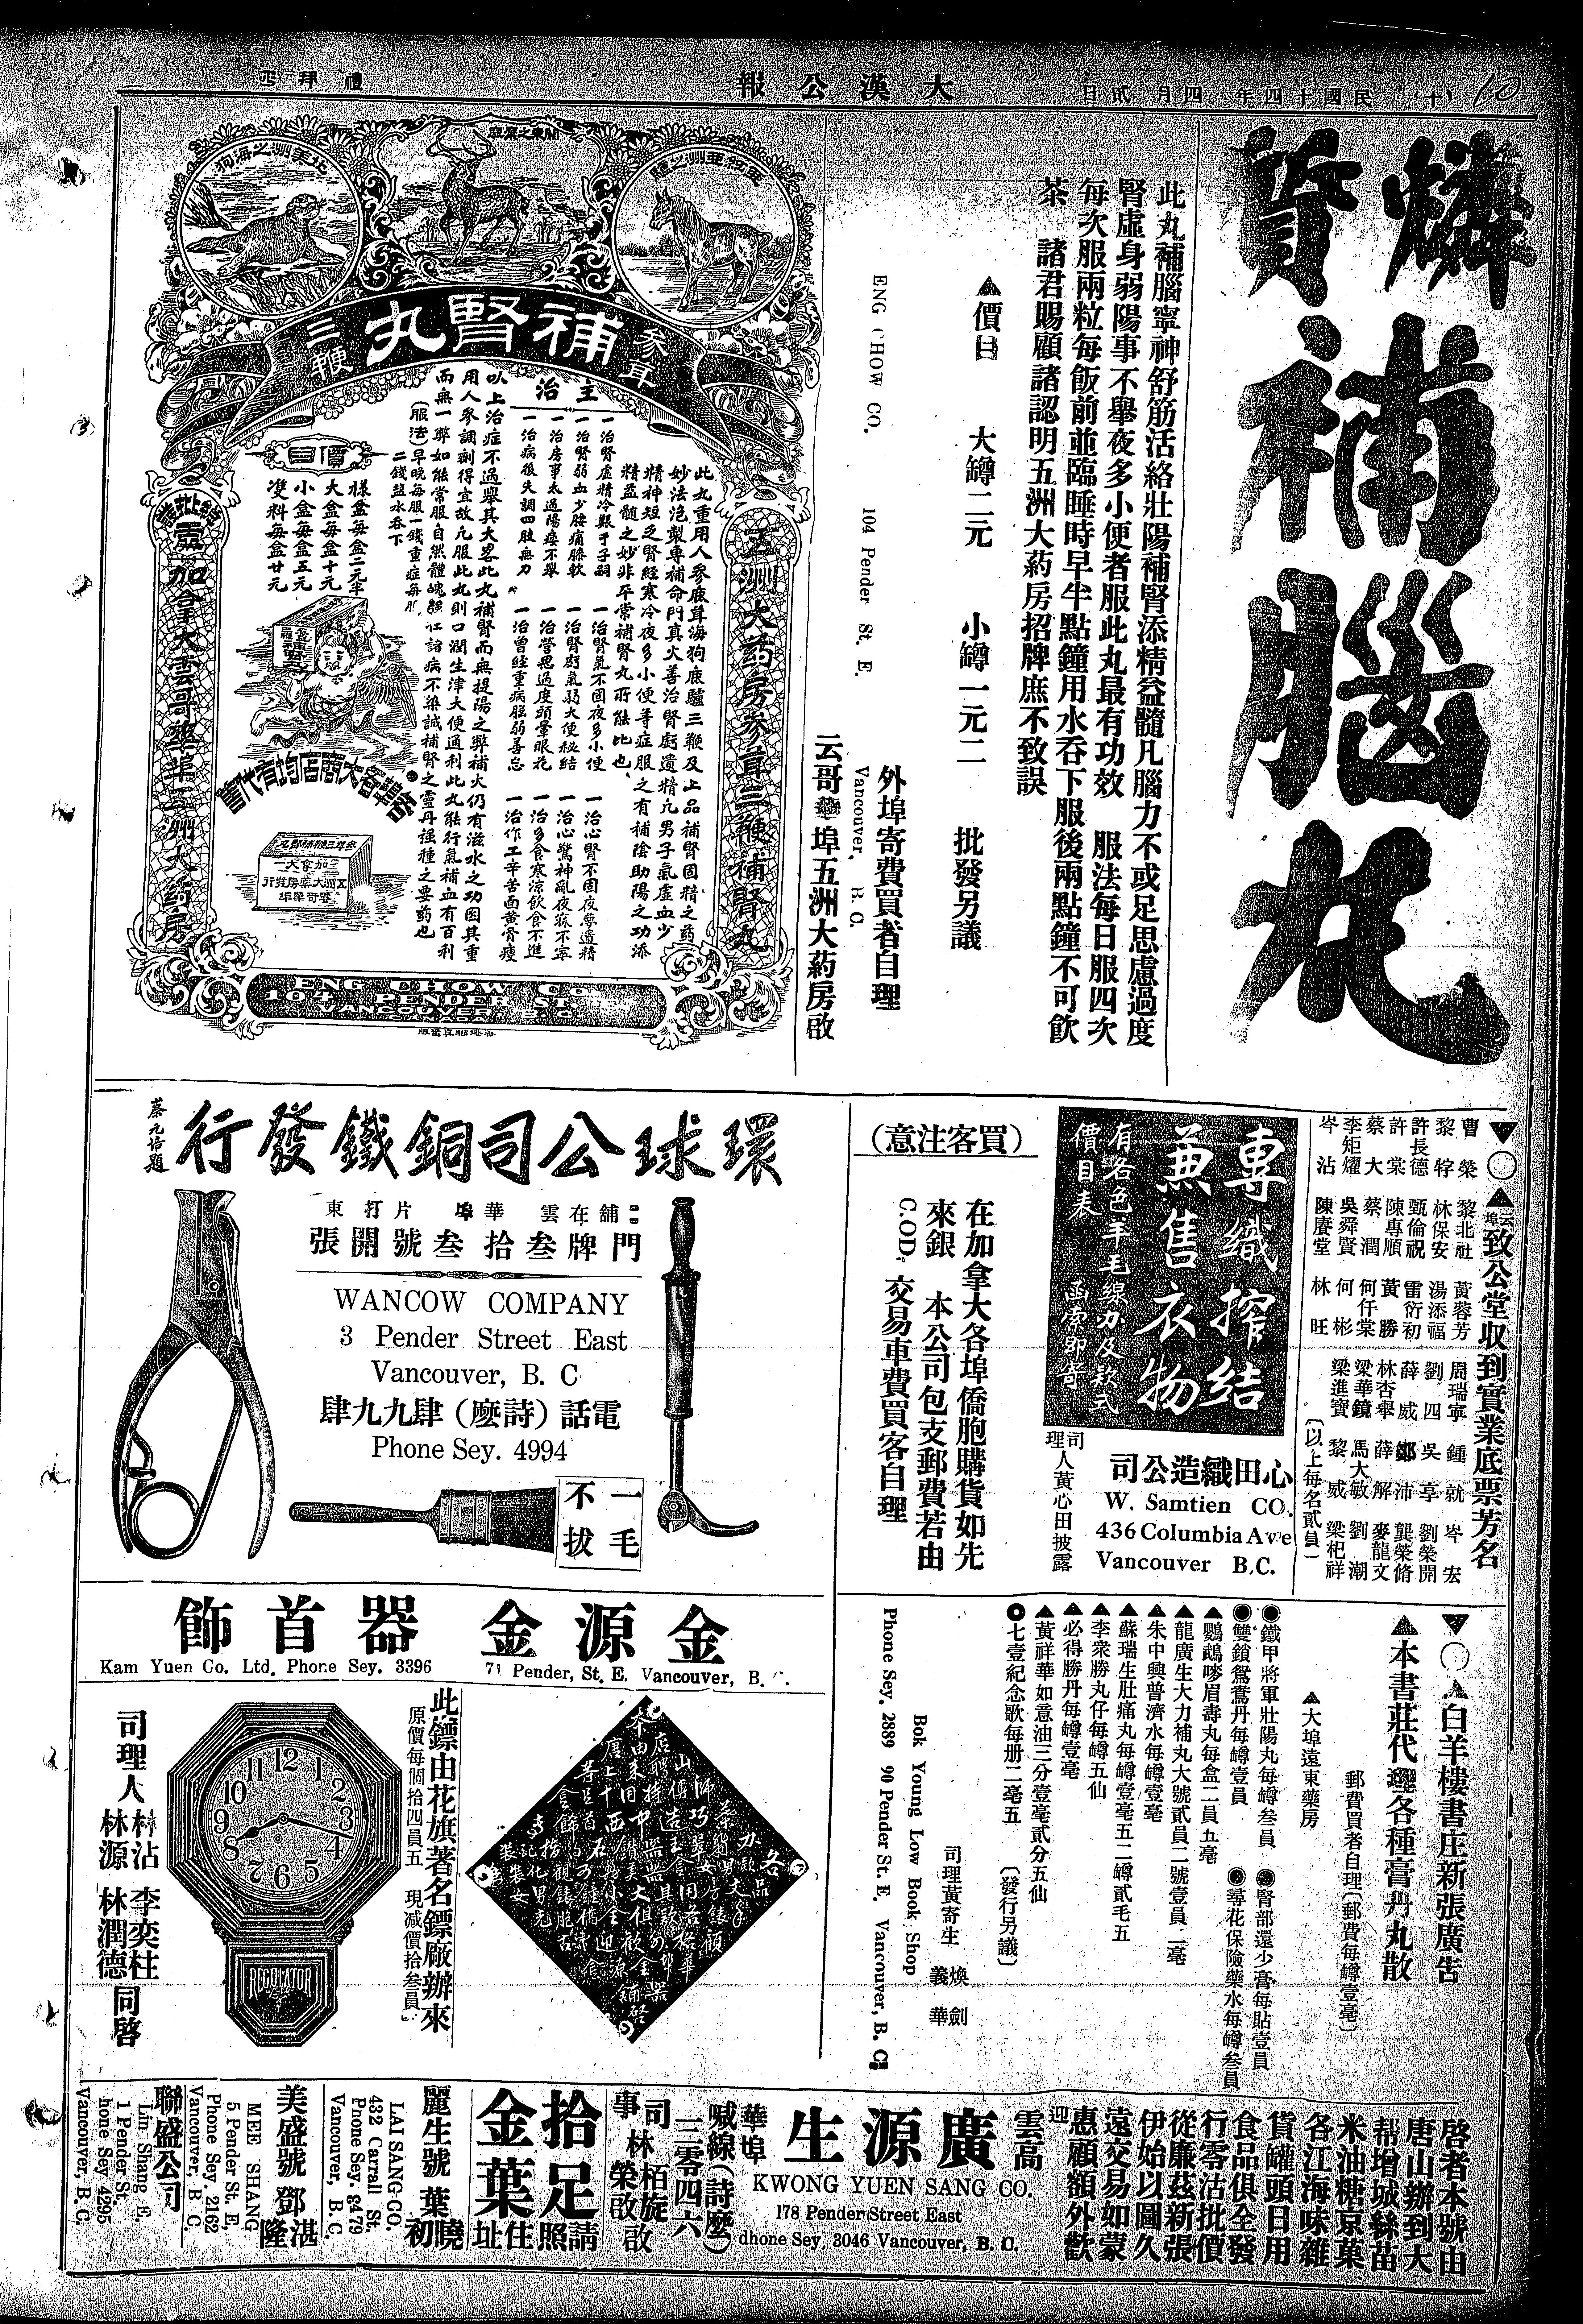 (十) 民國十四年 四月貳日
大漢公報
禮拜四
燐質
補腦丸
此丸補腦寧神舒筋活絡壯陽補腎添精益髓凡腦力不或足思慮過度
腎虛身弱陽事不舉夜多小便者服此丸最有功效 服法每日服四次
每次服兩粒每飯前並臨睡時早半點鐘用水吞下服後兩點鐘不可飲
茶 諸君賜顧諸認明五洲大葯房招牌庶不致誤
▲價目 大罇二元 小罇一元二 批發另議
外埠寄費買者自理
ENG CHOW CO. 104 Pender St. E. Vancouver, B. C.
云哥華埠五洲大葯房啟
北美洲之海狗
關東之鹿
亞細亞洲之驢
參茸
補腎丸
三鞭
五洲大药房參茸三鞭補腎丸
此丸重用人參鹿茸海狗鹿驢三鞭及上品補腎固精之药
妙法泡製專補命門真火善治腎虧遺精凡男子氣虛血少
精神短乏腎經寒冷夜多小便等症服之有補陰助陽之功添
精益髓之妙非平常補腎丸所能比也
主治
一治腎虛精冷艱于子嗣
一治腎弱血少腰痛膝軟
一治房事太過陽痿不舉
一治病後失調四肢無力
一治腎氣不固夜多小便
一治腎虧氣弱大便秘結
一治營思過度頭暈眼花
一治曾經重病腦弱善忘
一治心腎不固夜夢遺精
一治心驚神亂夜寐不寧
一治多食寒涼飲食不進
一治作工辛苦面黄骨瘦
以上治症不過舉其大畧此丸補腎而無提陽之弊補火仍有滋水之功因其重
用人參調劑得宜故凡服此丸則口潤生津大便通利此丸能行氣補血有百利
而無一弊如能常服自然體魄強壮諸病不染誠補腎之靈丹強種之要药也
(服法)早晚每服一錢重症每服
二錢盐水吞下
價目
樣盒每盒二元半
大盒每盒十元
小盒每盒五元
雙料每盒廿元
各埠各大商店均有代售
加拿大雲哥華埠五洲大药房
ENG CHOW CO.
104 PENDER ST. E.
VANCOUVER B.C.
▼○▲云埠致公堂收到實業底票芳名
曹榮 黎北社 黃蓉芳 周瑞寧 鍾就 岑宏
黎牸 林保安 湯添福 劉四 吳享 劉榮開
許長德 甄倫祝 雷衍初 薛威 鄭沛 龔榮脩
許棠 陳專順 黃勝 林杏舉 薛解 麥龍文
蔡大 蔡潤 何仟棠 梁華鏡 馬大敏 劉潮
李矩燿 吳舜賢 何彬 梁進寶 黎威 梁杞祥
岑沾 陳賡堂 林旺 (以上每名貳員)
專織搾結
兼售衣物
有各色羊毛線办及款式
價目表 函索即寄
心田織造公司
W. Samtien CO.
436 Columbia Ave
Vancouver B.C.
司理人黃心田披露
(買客注意)
在加拿大各埠僑胞購貨如先
來銀 本公司包支郵費若由
C.O.D. 交易車費買客自理
環球公司銅鐵發行
蔡元培題
舖在雲華埠片打東
門牌叁拾叁號開張
WANCOW COMPANY
3 Pender Street East
Vancouver, B. C
電話(詩麽)肆九九肆
Phone Sey. 4994
一毛不拔
▼○▲白羊樓書庄新張廣吿
▲本書莊代理各種膏丹丸散
郵費買者自理(郵費每罇壹毫)
▲大埠遠東藥房
●鐵甲將軍壯陽丸每罇叁員 ●腎部還少膏每貼壹員
●雙鎖鴛鴦丹每罇壹員 ●尋花保險藥水每罇叁員
▲鸚鵡嘜眉壽丸每盒二員五毫
▲龍廣生大力補丸大號貳員二號壹員二毫
▲朱中興普濟水每罇壹毫
▲蘇瑞生肚痛丸每罇壹毫五二罇貳毛五
▲李衆勝丸仔每罇五仙
▲必得勝丹每罇壹毫
▲黃祥華如意油三分壹毫貳分五仙
●七壹紀念歌每册二毫五 (發行另議)
司理黃寄生 煥劍 義華
Bok Young Low Book Shop
Phone Sey. 2889 90 Pender St. E. Vancouver, B. C.
金源金器首飾
Kam Yuen Co. Ltd. Phone Sey. 3396 71 Pender, St. E. Vancouver, B. C.
此鏢由花旗著名鏢廠辦來
原價每個拾四員五 現減價拾叁員
REGULATOR
司理人 林沾 林源 李奕柱 林潤德 同啓
啓者本號由
唐山辦到大
帮增城絲苗
米油糖京菓
各江海味雜
貨罐頭日用
食品俱全發
行零沽批價
從廉茲新張
伊始以圖久
遠交易如蒙
惠顧額外歡
迎
雲高華埠
廣源生
KWONG YUEN SANG CO.
178 Pender Street East
Phone Sey. 3046 Vancouver, B. C.
喊線(詩麽)三零四六
司事 林栢旋 林榮啟 啟
拾足金葉
請照住址
麗生號 葉曉初
LAI SANG CO.
432 Carrall St.
Phone Sey. 8479
Vancouver, B. C.
美盛號 鄧湛隆
MEE SHANG
5 Pender St. E.
Phone Sey. 2162
Vancouver, B. C.
聯盛公司
Lin Shang E.
1 Pender St.
Phone Sey 4295
Vancouver, B. C.